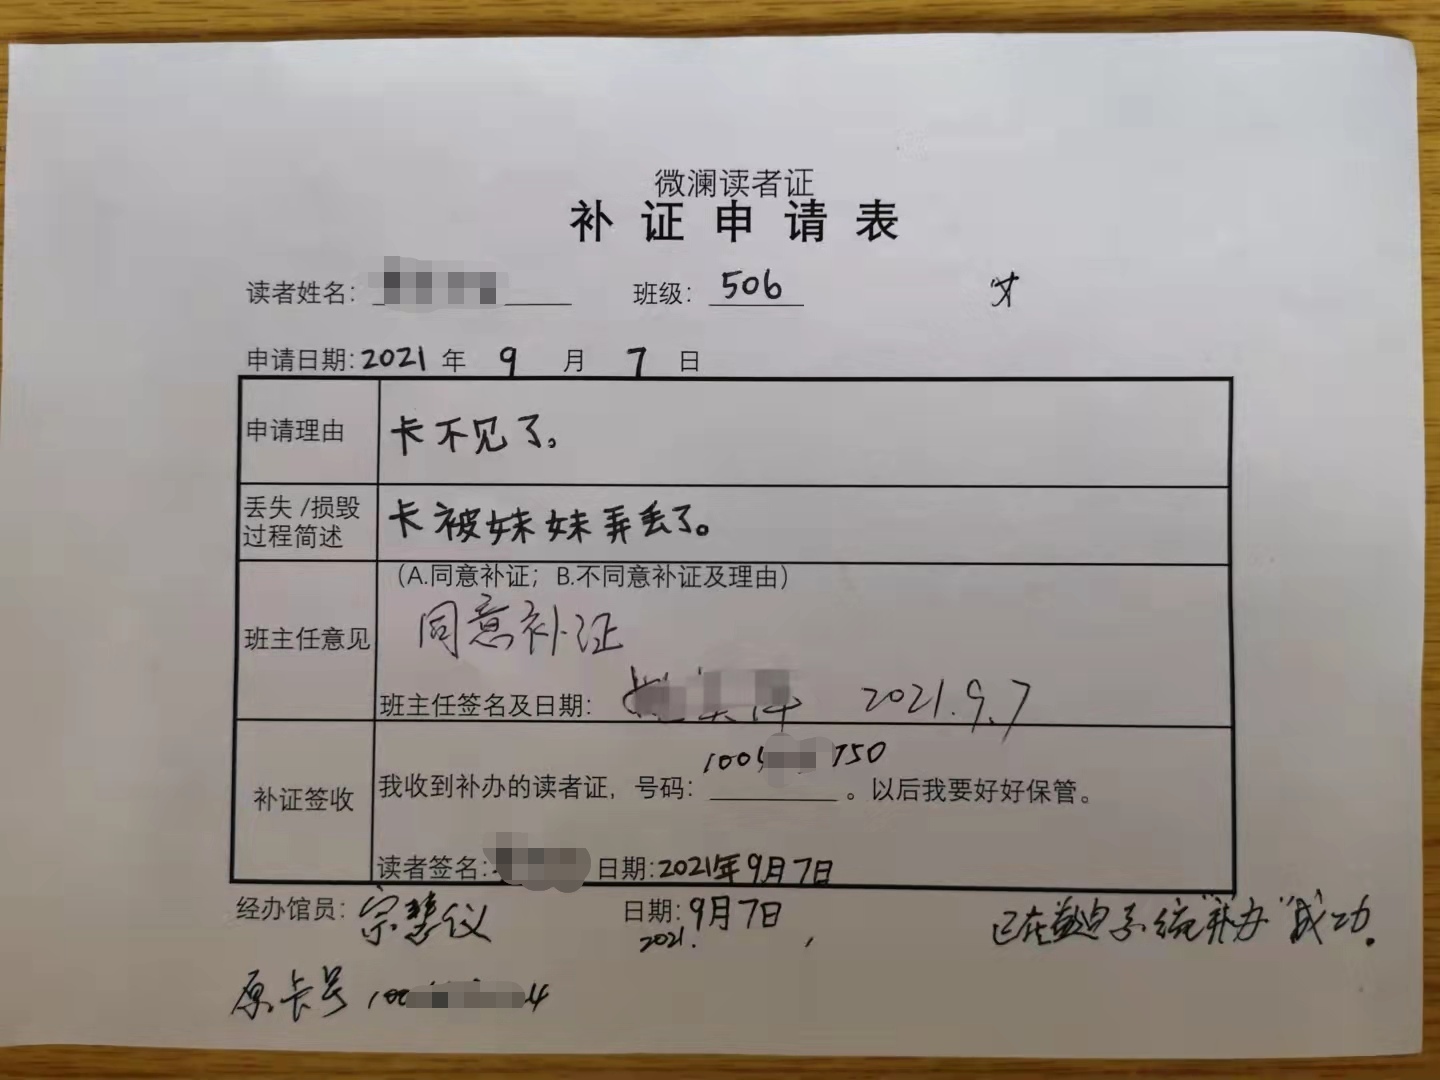 微澜读者证
补证申请表
读者姓名： 班级：506
申请日期：2021年9月7日
申请理由 卡不见了。
丢失/损毁过程简述 卡被妹妹弄丢了。
(A.同意补证；B.不同意补证及理由)
班主任意见 同意补证
班主任签名及日期： 2021.9.7
100 750
补证签收 我收到补办的读者证，号码： 。以后我要好好保管。
读者签名: 日期:2021年9月7日
经办馆员：宗慧仪 日期:9月7日 已在 系统"补办"成功。
2021.
原卡号 100 4